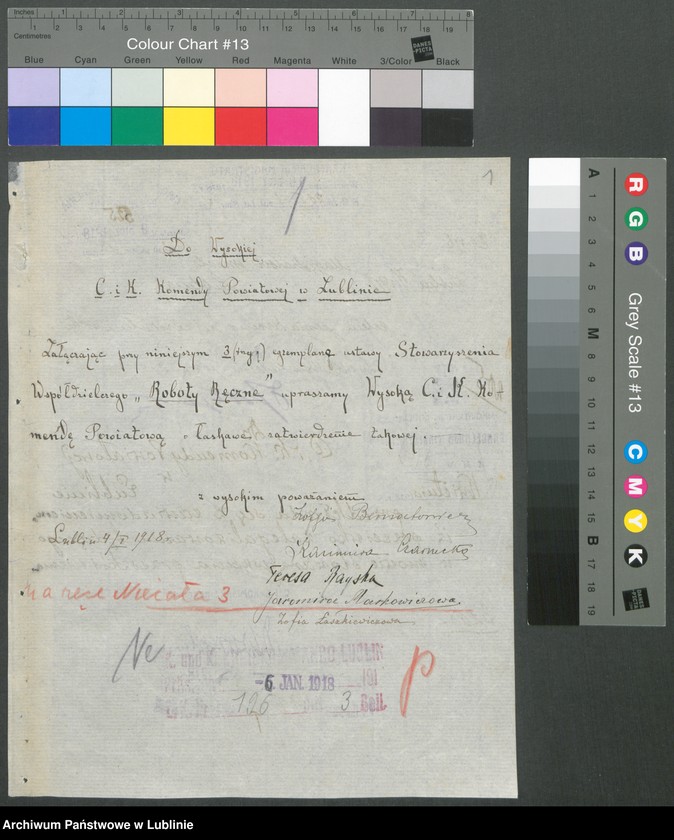 Inches 1 2 3 4 5 6 7 8
Centimetres 1 2 3 4 5 6 7 8 9 10 11 12 13 14 15 16 17 18 19
Colour Chart #13
DANES-PICTA
Blue Cyan Green Yellow Red Magenta White 3/Color Black
1
Do Wysokiej
C. i K. Komendy Powiatowej w Lublinie
Załączając przy niniejszym 3 egzemplarze ustawy Stowarzyszenia
Współdzielczego „Roboty Ręczne” upraszamy Wysoką C. i K. Ko-
mendę Powiatową o łaskawe zatwierdzenie takowej
z wysokim poważaniem
Zofja
Lublin 4/I 1918 r.
Kazimiera Czarnecka
Teresa Rayska
na ręce Niecała 3
Jaromira Markowiczowa
Zofia Laśkiewiczowa
-6. JAN. 1918
126 3 Beil.
A 1 2 3 4 5 6 M 8 9 10 11 12 13 14 15 B 17 18 19
R G B
Grey Scale #13
C M Y K
DANES-PICTA
Archiwum Państwowe w Lublinie